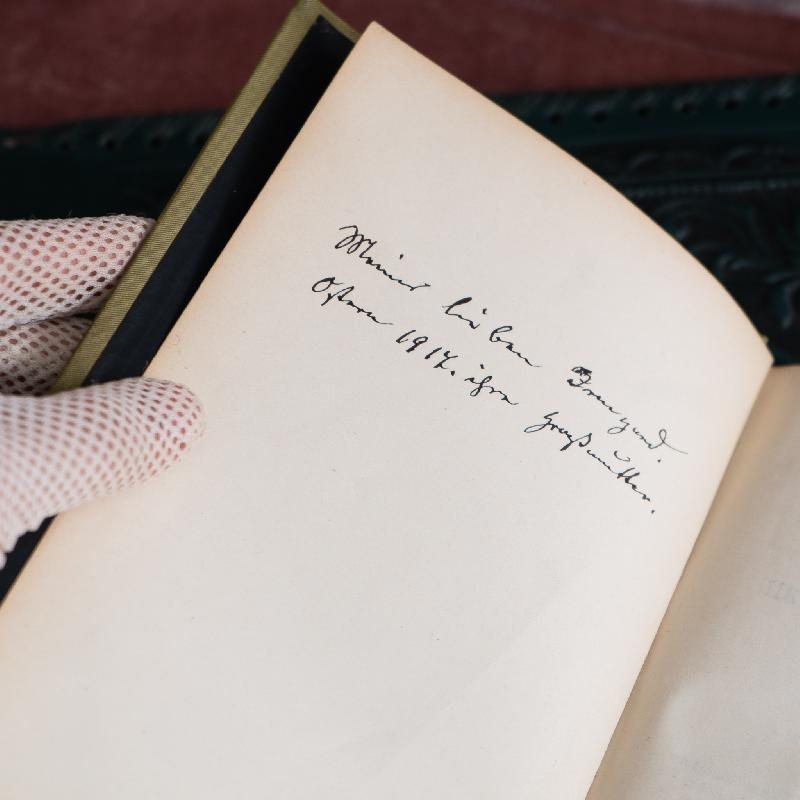 Meiner lieben Irmgard.
Ostern 1917. ihre Großmutter.